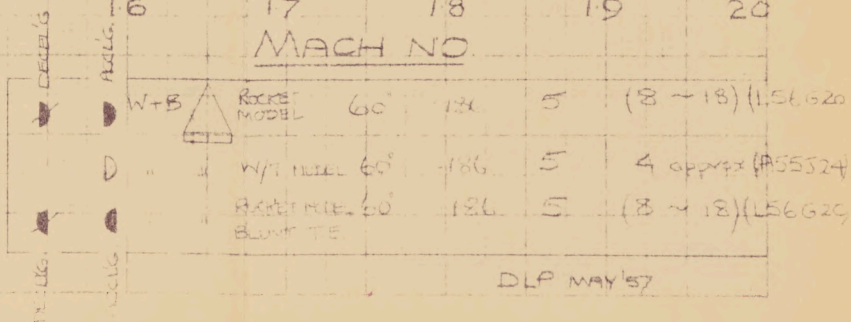 6 17 18 19 20
MACH NO.
DECEL'G ACCL'G
W+B ROCKET MODEL 60° 186 5 (8 ~ 18) (L56G20
" " W/T MODEL 60° 186 5 4 approx (A55J24)
" ROCKET MODEL 60° 186 5 (8 ~ 18) (L56G20
BLUNT T.E.
DLP MAY '57